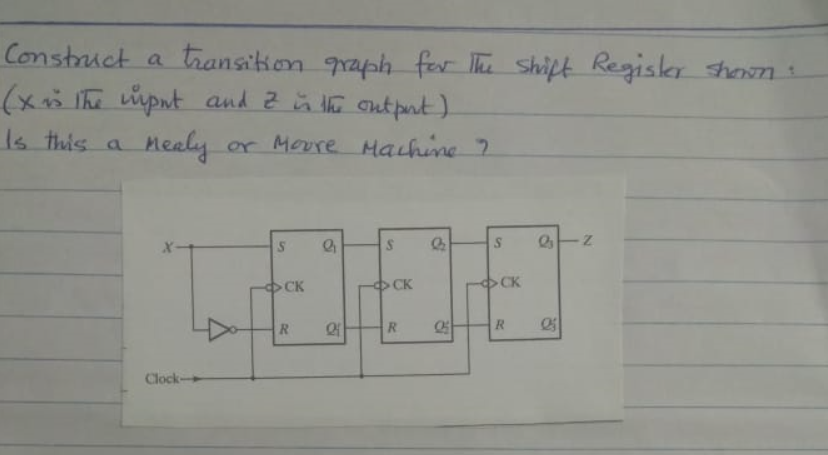 Construct a transition graph for The shift Register shown :
(X is The input and Z is the output)
Is this a Mealy or Moore Machine ?
X S Q₁ S Q₂ S Q₃ Z
CK CK CK
R Q₁' R Q₂' R Q₃'
Clock